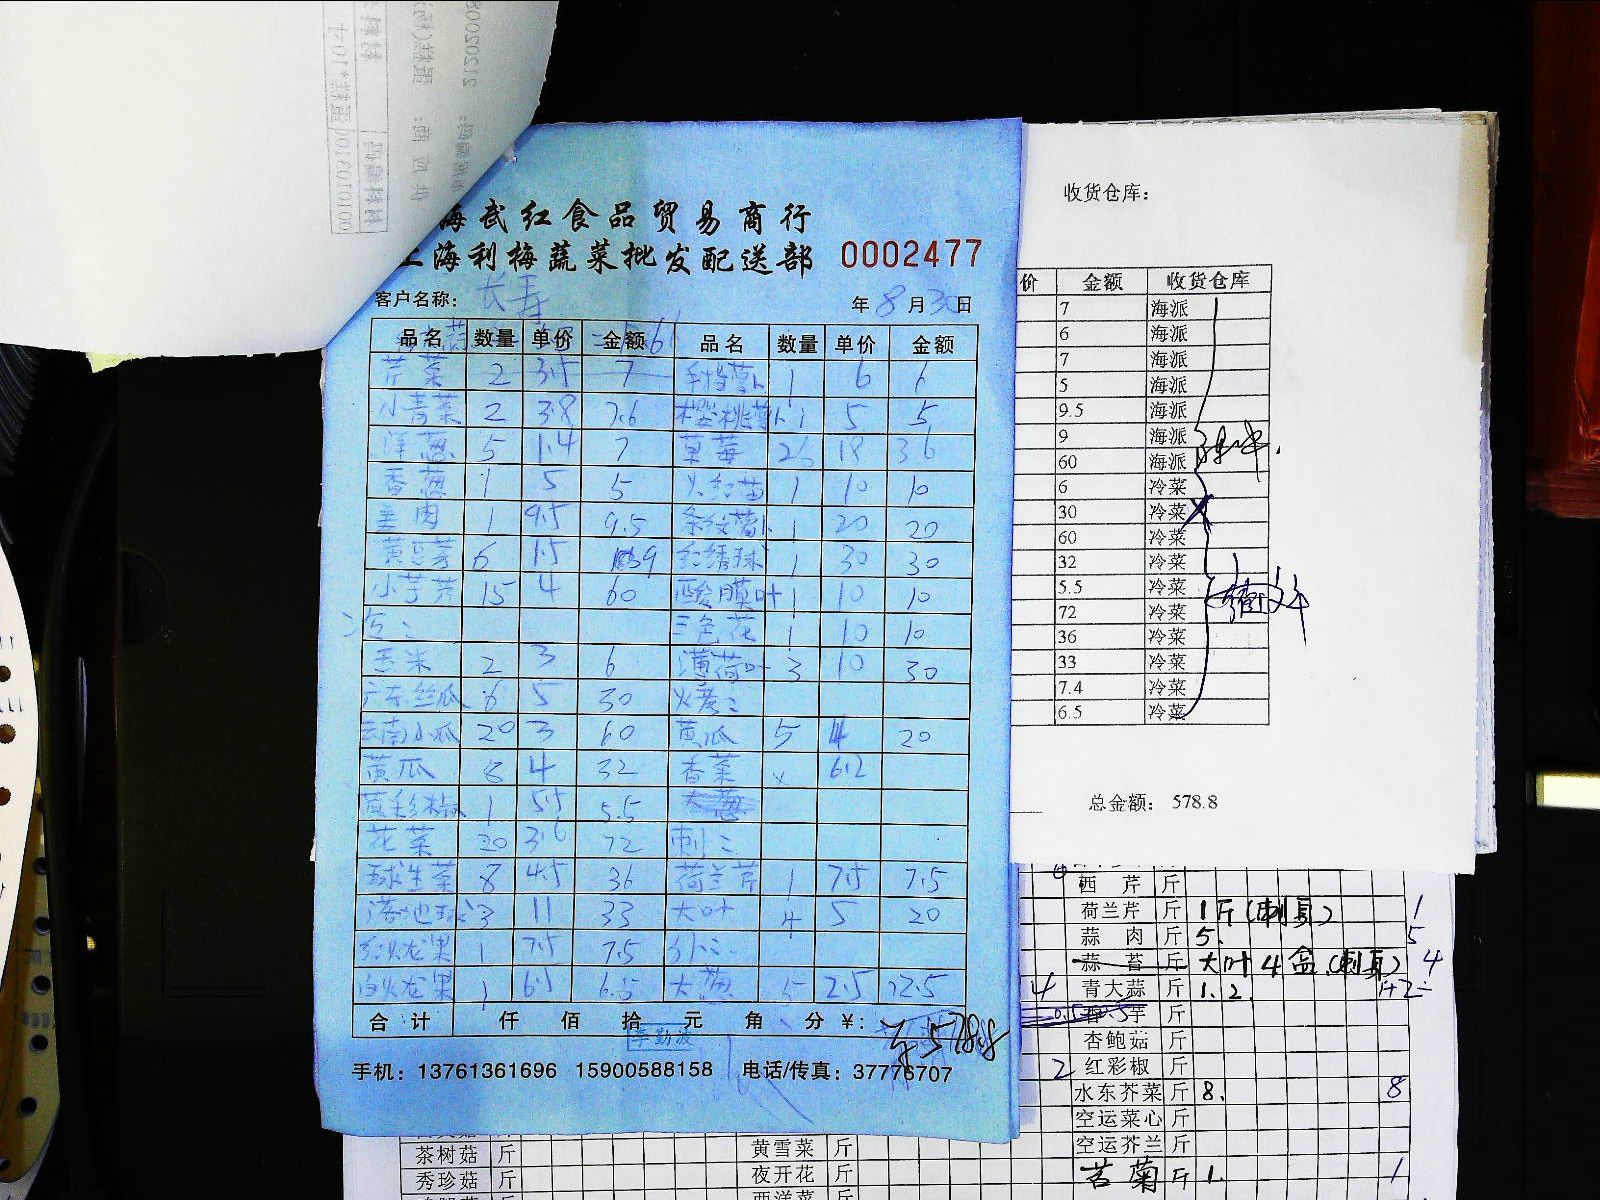 海武红食品贸易商行
上海利梅蔬菜批发配送部 0002477
客户名称: 长寿 年8月30日
品名 数量 单价 金额 品名 数量 单价 金额
芹菜 2 3.5 7 1 6 6
小青菜 2 3.8 7.6 樱桃萝卜 1 5 5
洋葱 5 1.4 7 草莓 18 36
香葱 1 5 5 火红苗 1 10 10
姜肉 1 9.5 9.5 条纹萝卜 1 20 20
黄豆芽 6 1.5 9 红绣球 1 30 30
小芋艿 15 4 60 酸膜叶 1 10 10
冷: 三色花 1 10 10
玉米 2 3 6 薄荷叶 3 10 30
广东丝瓜 6 5 30 烧烤:
云南小瓜 20 3 60 黄瓜 5 4 20
黄瓜 8 4 32 香菜 6.2
黄彩椒 1 5.5 5.5
花菜 20 3.6 72 刺:
球生菜 8 4.5 36 荷兰芹 1 7.5 7.5
3 11 33 大叶 4 5 20
红火龙果 1 7.5 7.5
白火龙果 1 6.5 6.5 大葱 5 2.5 12.5
合计 仟 佰 拾 元 角 分 ¥: 578.8
李勤波
手机: 13761361696 15900588158 电话/传真: 37776707
收货仓库:
价 金额 收货仓库
7 海派
6 海派
7 海派
5 海派
9.5 海派
9 海派
60 海派
6 冷菜
30 冷菜
60 冷菜
32 冷菜
5.5 冷菜
72 冷菜
36 冷菜
33 冷菜
7.4 冷菜
6.5 冷菜
总金额: 578.8
西芹 斤
荷兰芹 斤 1斤(刺身) 1
蒜肉 斤 5. 5
蒜苔 斤 大叶4盒(刺身) 4
4 青大蒜 斤 1.2. 1+2=
香芋 斤
杏鲍菇 斤
2 红彩椒 斤
水东芥菜 斤 8. 8
空运菜心 斤
空运芥兰 斤
苦菊 斤 1. 1
茶树菇 斤 黄雪菜 斤
秀珍菇 斤 夜开花 斤
西洋菜 斤